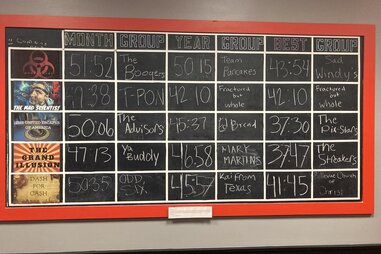 MONTH GROUP YEAR GROUP BEST GROUP
51:52 The Boogers 50:15 Team Pancakes 43:54 Sad Windys
THE MAD SCIENTIST
:38 T-PON 42:10 Fractured but whole 42:10 Fractured but whole
UNITED ESCAPES OF AMERICA
50:06 The Advisors 45:37 @Bread 37:30
THE GRAND ILLUSION
47:13 Ya Buddy 46:58 MARY MARTINS 37:47 The Streakers
DASH FOR CASH
50:35 ODD SIX 45:57 Kai From Texas 41:45 Church of Christ